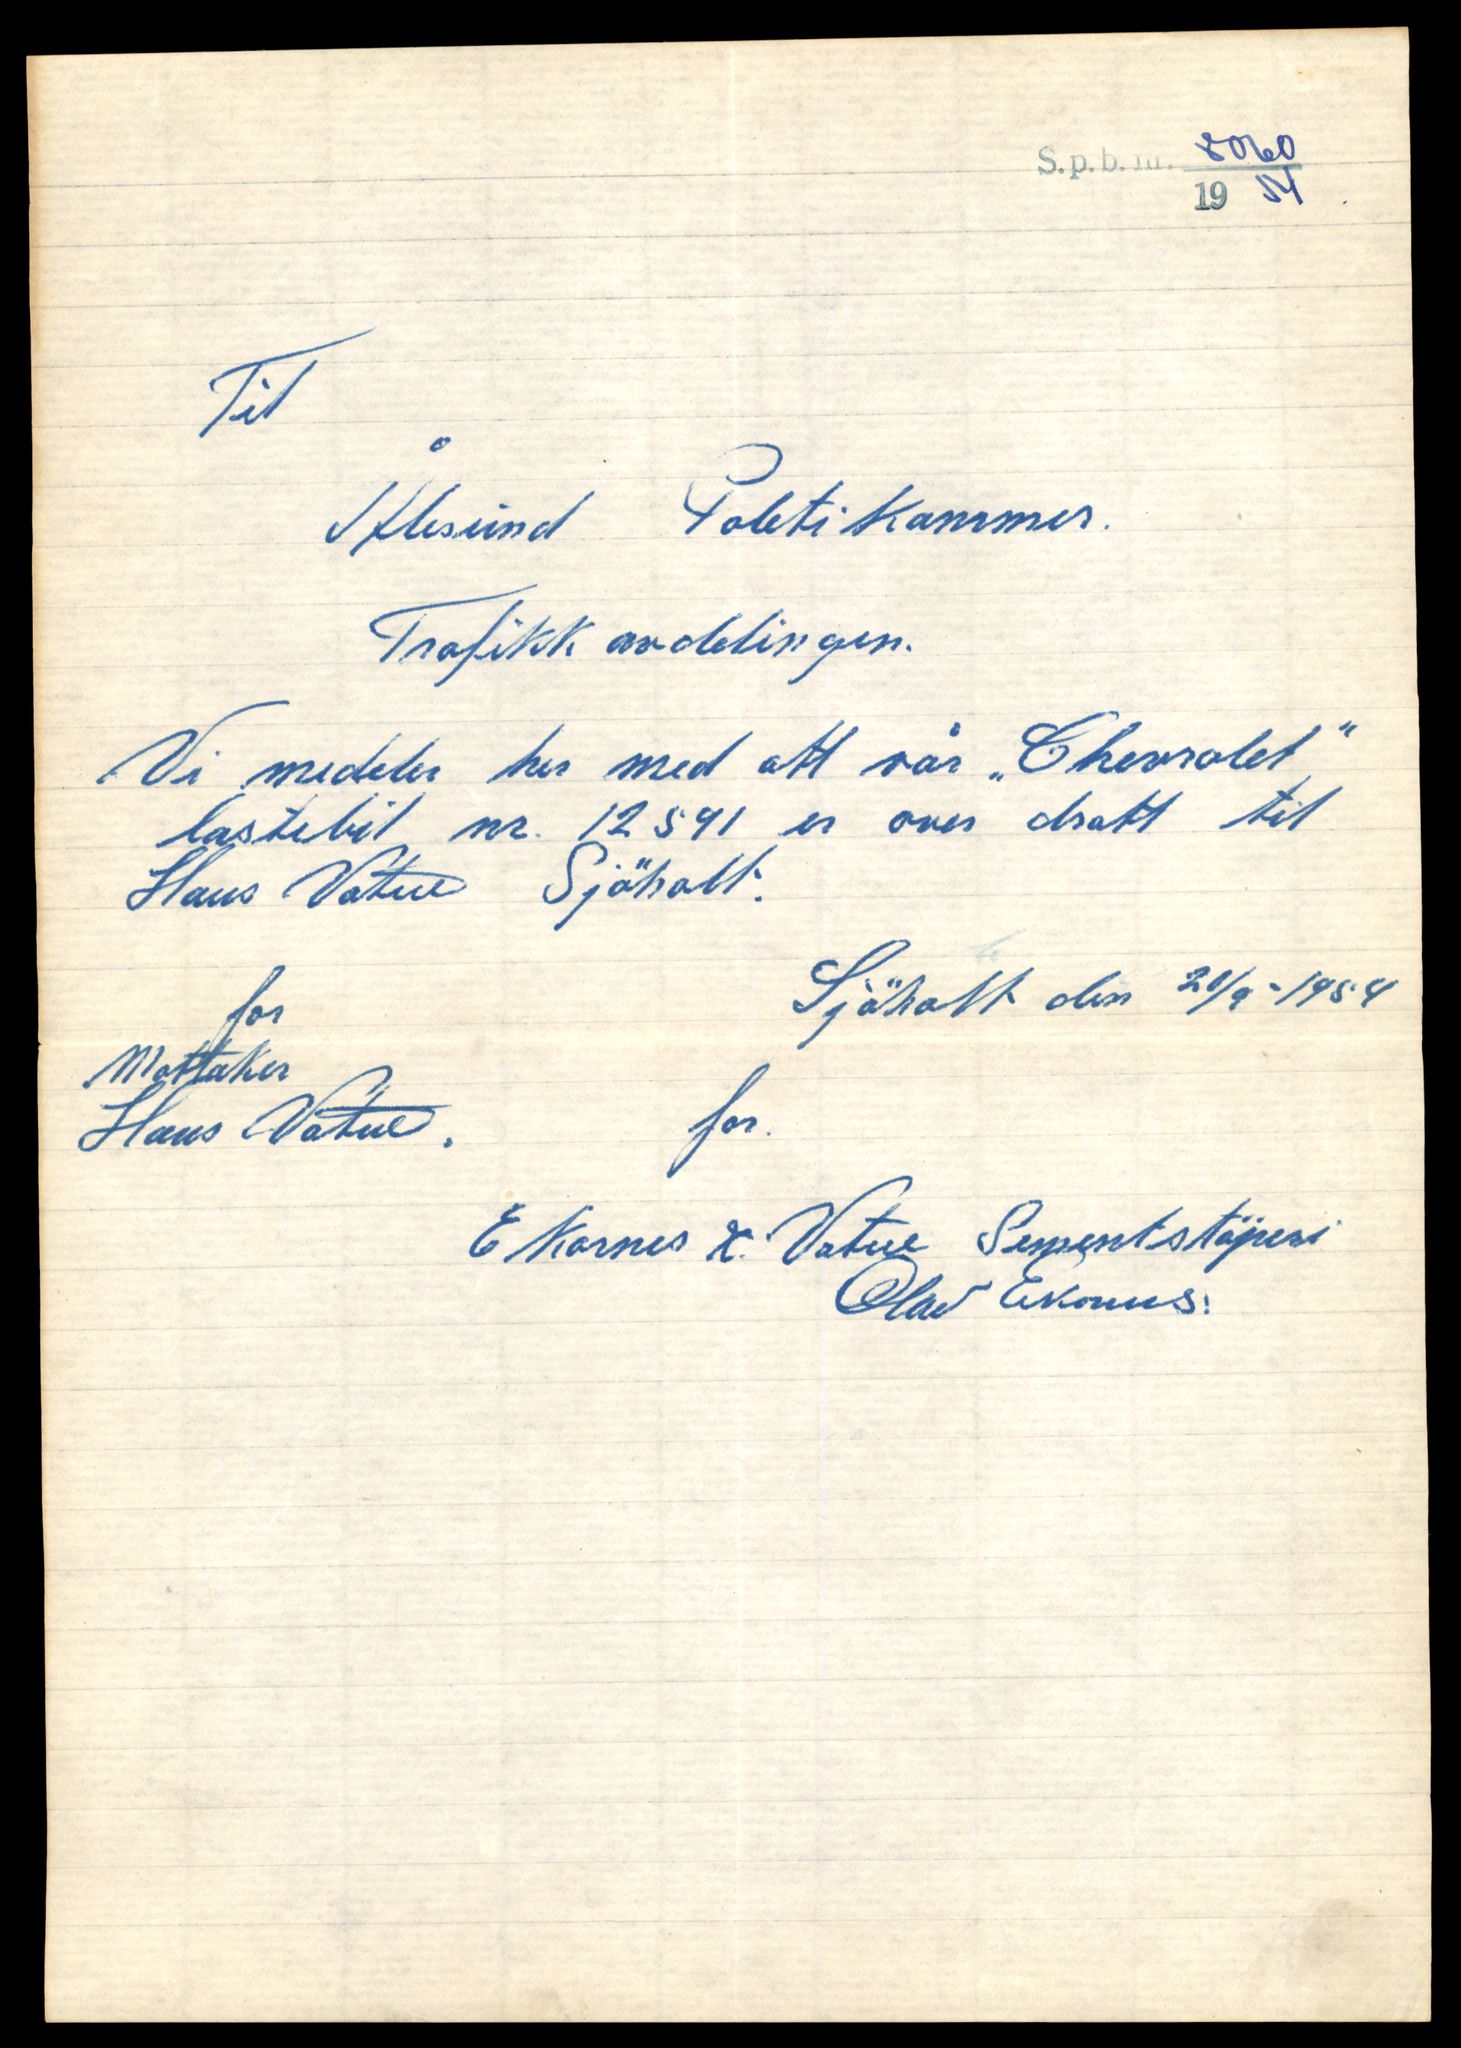 S.p.b.nr. 8060
19 54
Til
Ålesund Poletikammer.
Trafikk avdelingen.
Vi medeler her med att vår „Chevrolet"
lastebil nr. 12591 er over dratt til
Hans Vatne Sjöholt.
Sjöholt den 20/9-1954
for
Mottaker
Hans Vatne.
for.
Ekornes & Vatne Sementstöperi
Olav Ekornes.